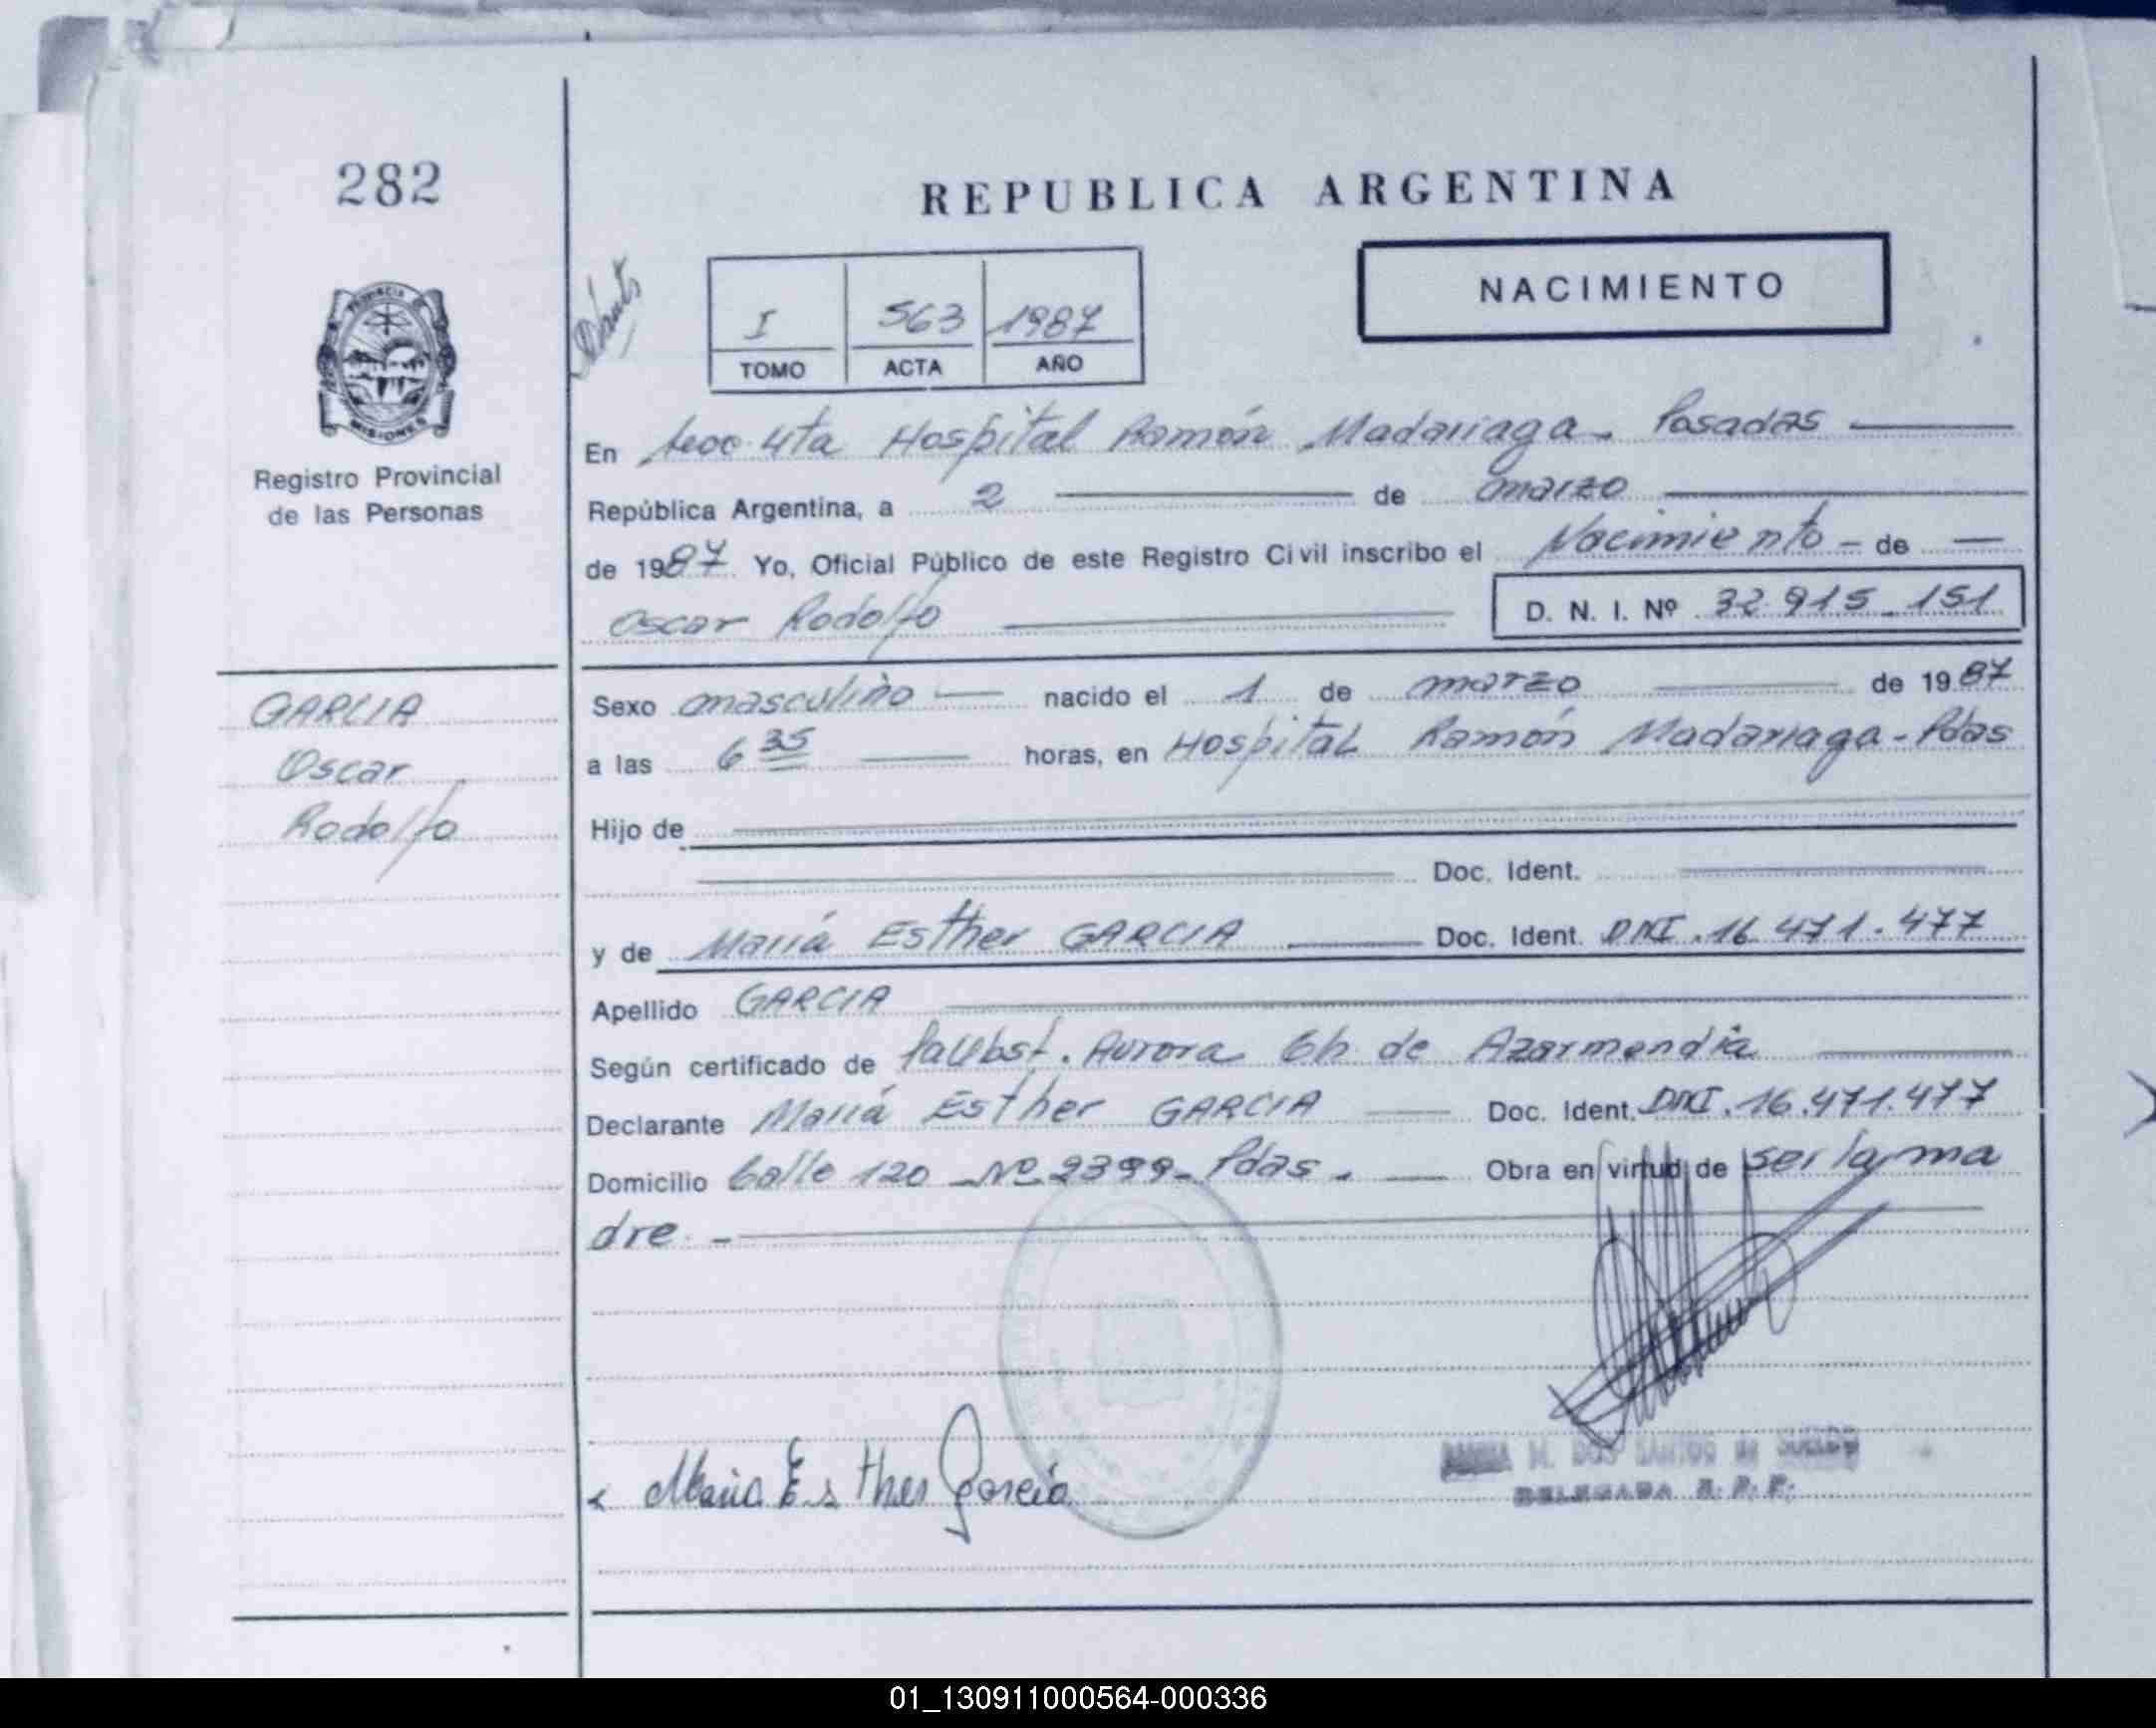 282
REPUBLICA ARGENTINA
NACIMIENTO
I 563 1987
TOMO ACTA AÑO
PROVINCIA DE
MISIONES
Registro Provincial
de las Personas
En Secc 4ta Hospital Ramón Madariaga. Posadas
República Argentina, a 2 de marzo
de 1987 Yo, Oficial Público de este Registro Civil inscribo el Nacimiento - de
Oscar Rodolfo D. N. I. Nº 32.915.151
GARCIA
Oscar
Rodolfo
Sexo masculino nacido el 1 de marzo de 1987
a las 6 35 horas, en Hospital Ramón Madariaga - Pdas
Hijo de
Doc. Ident.
y de María Esther GARCIA Doc. Ident. DNI. 16.471.477
Apellido GARCIA
Según certificado de Aurora de Azarmendia
Declarante María Esther GARCIA Doc. Ident. DNI. 16.471.477
Domicilio Calle 120 Nº 2399 - Pdas. Obra en virtud de ser la ma
dre. -
Maria Esther Garcia
M. DOS SANTOS de
DELEGADA R. P. P.
01_130911000564-000336